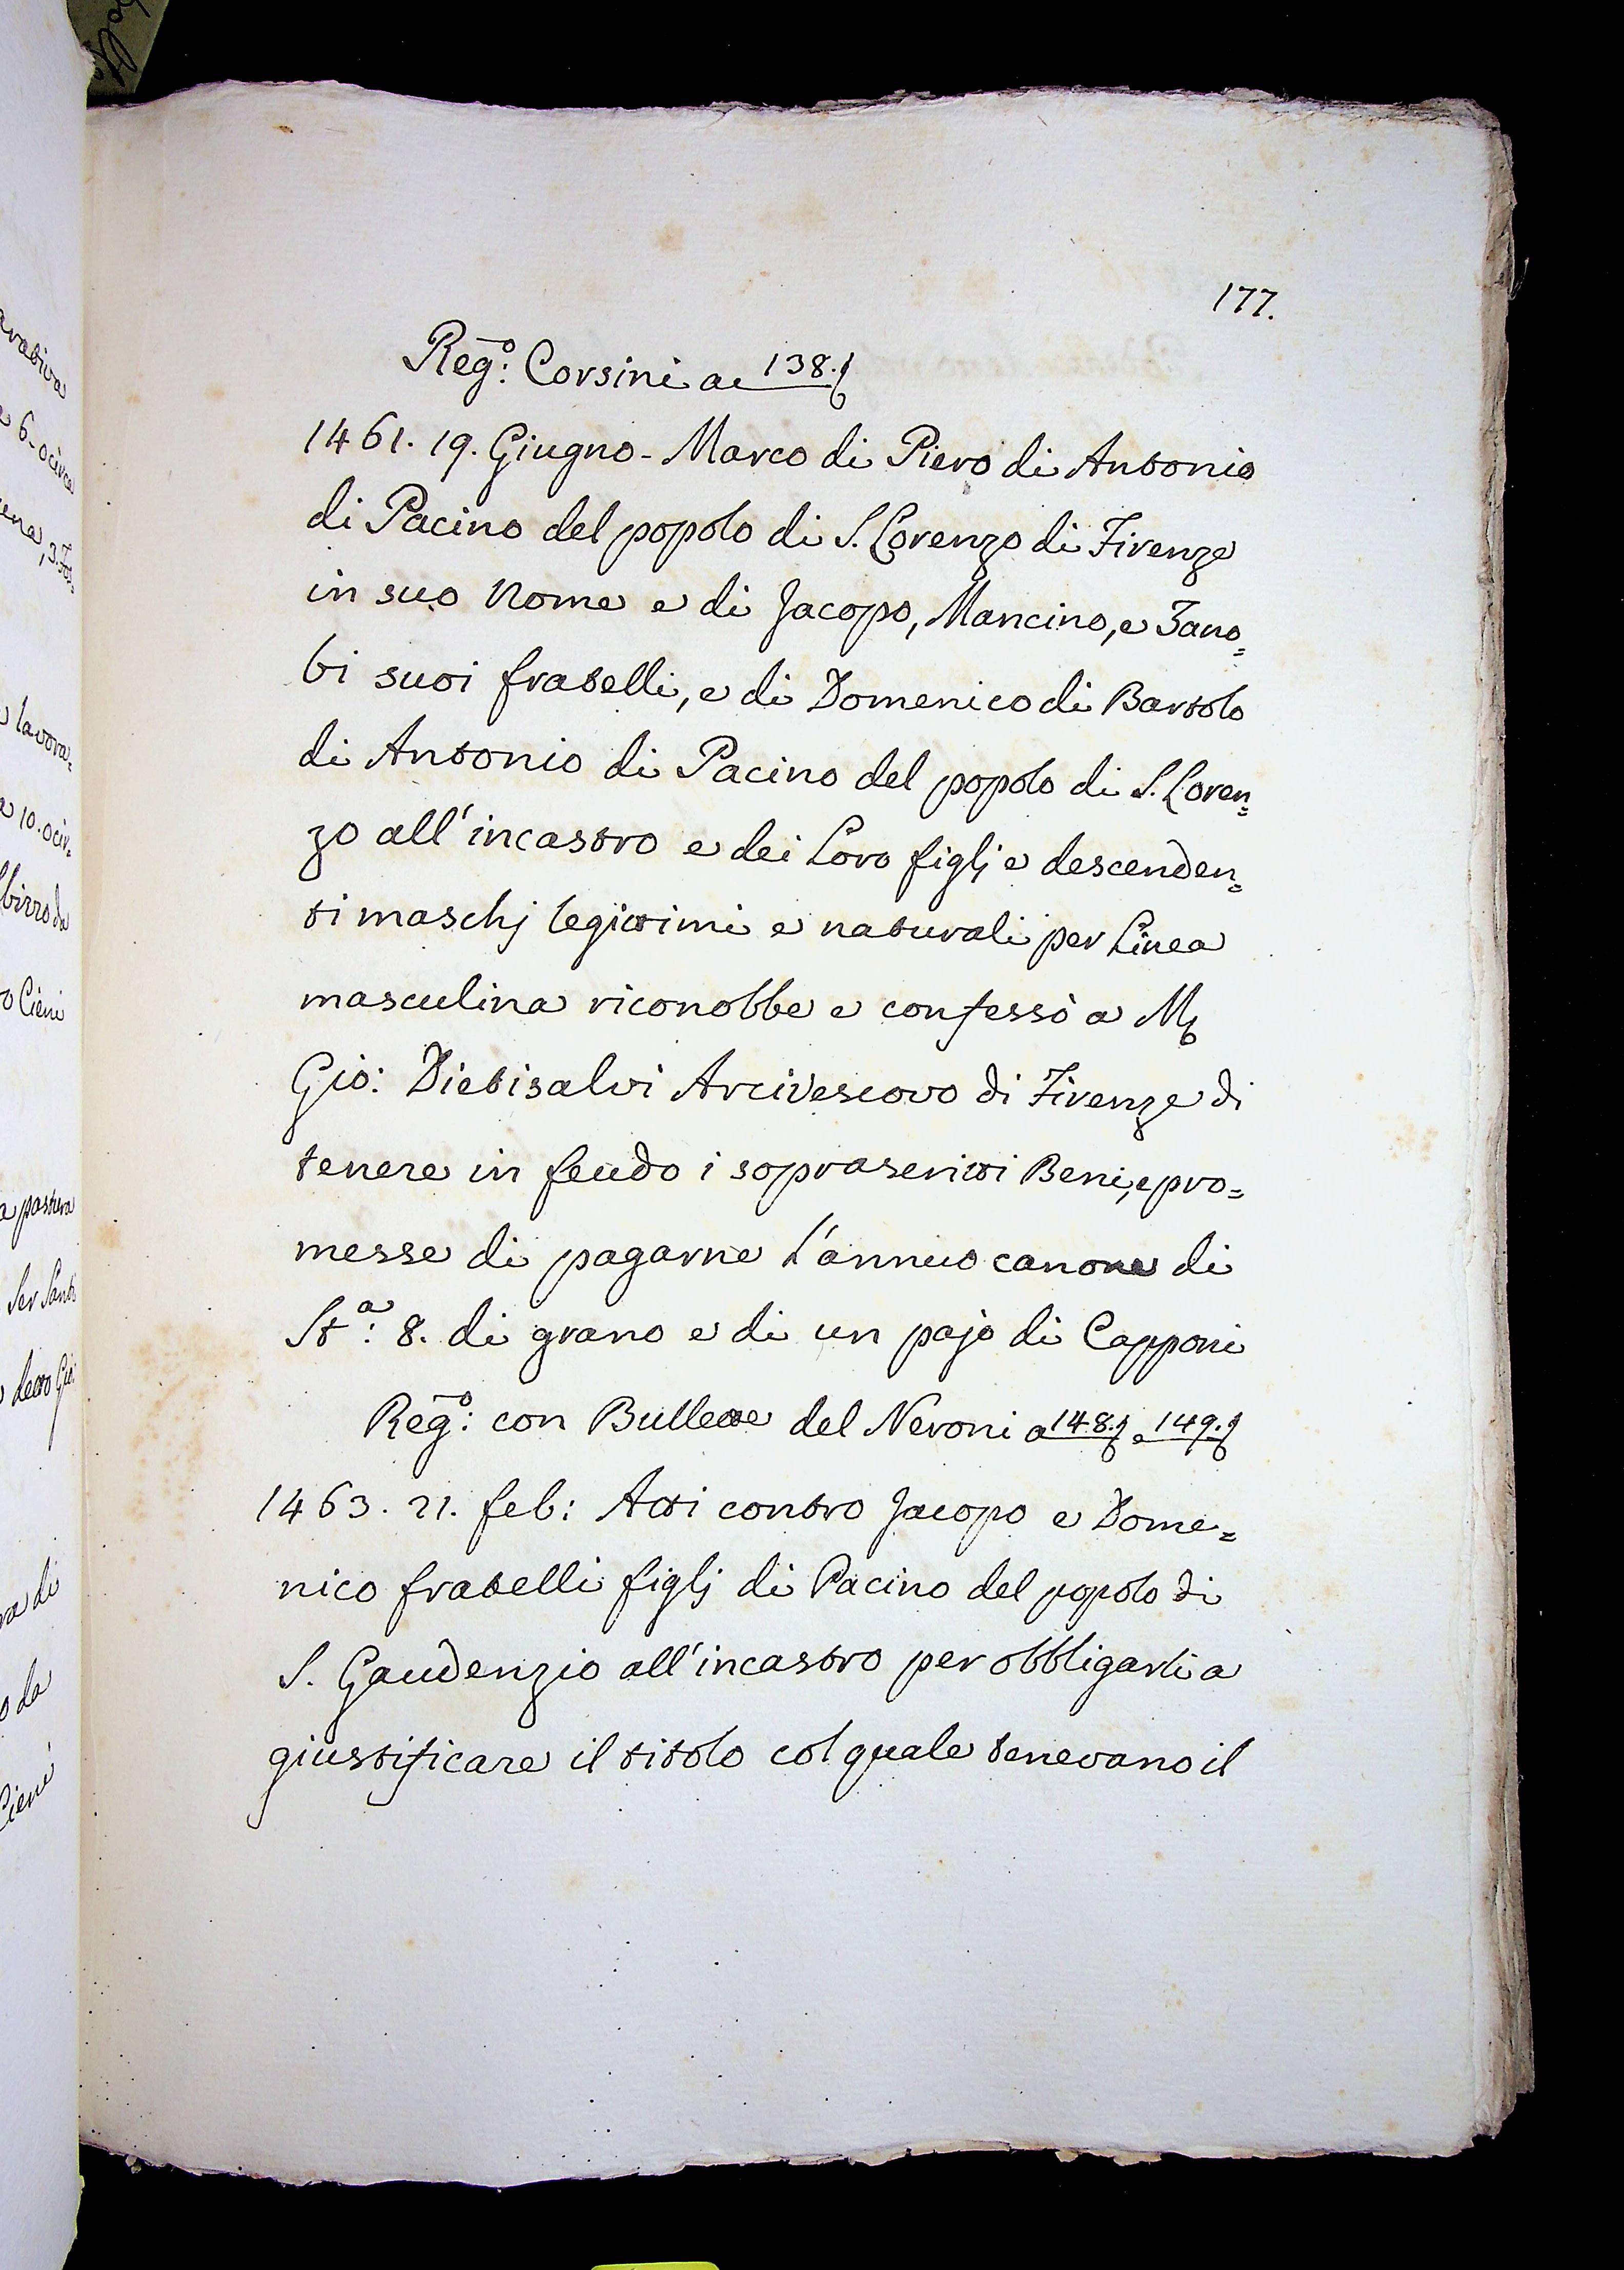 177.
Reg.º: Corsini a 138.
1461. 19. Giugno - Marco di Piero di Antonio
di Pacino del popolo di S. Lorenzo di Firenze
in suo Nome e di Jacopo, Mancino, e Zano=
bi suoi fratelli, e di Domenico di Bartolo
di Antonio di Pacino del popolo di S. Loren=
zo all'incastro e dei Loro figlj e descenden=
ti maschj legittimi e naturali per Linea
masculina riconobbe e confessò a M
Gio: Dietisalvi Arcivescovo di Firenze di
tenere in feudo i soprascritti Beni, e pro=
messe di pagarne l'annuo canone di
St.ª: 8. di grano e di un pajo di Capponi
Reg.º: con Bullette del Neroni a 148. e 149.
1463. 21. feb: Atti contro Jacopo e Dome=
nico fratelli figlj di Pacino del popolo di
S. Gaudenzio all'incastro per obbligarli a
giustificare il titolo col quale tenevano il
lavora=